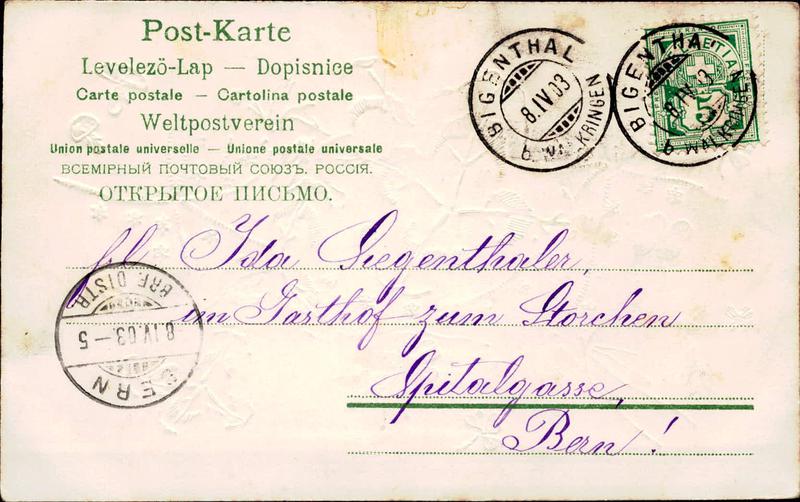 Post-Karte
Levelezö-Lap — Dopisnice
Carte postale — Cartolina postale
Weltpostverein
Union postale universelle — Unione postale universale
ВСЕМІРНЫЙ ПОЧТОВЫЙ СОЮЗЪ. РОССІЯ.
ОТКРЫТОЕ ПИСЬМО.
BIGENTHAL
8.IV.03
b. WALKRINGEN
BIGENTHAL
8.IV.03
b. WALKRINGEN
5
Ida Siegenthaler,
im Gasthof zum Storchen
Spitalgasse,
Bern!
BRF. DISTR.
8.IV.03–5
BERN